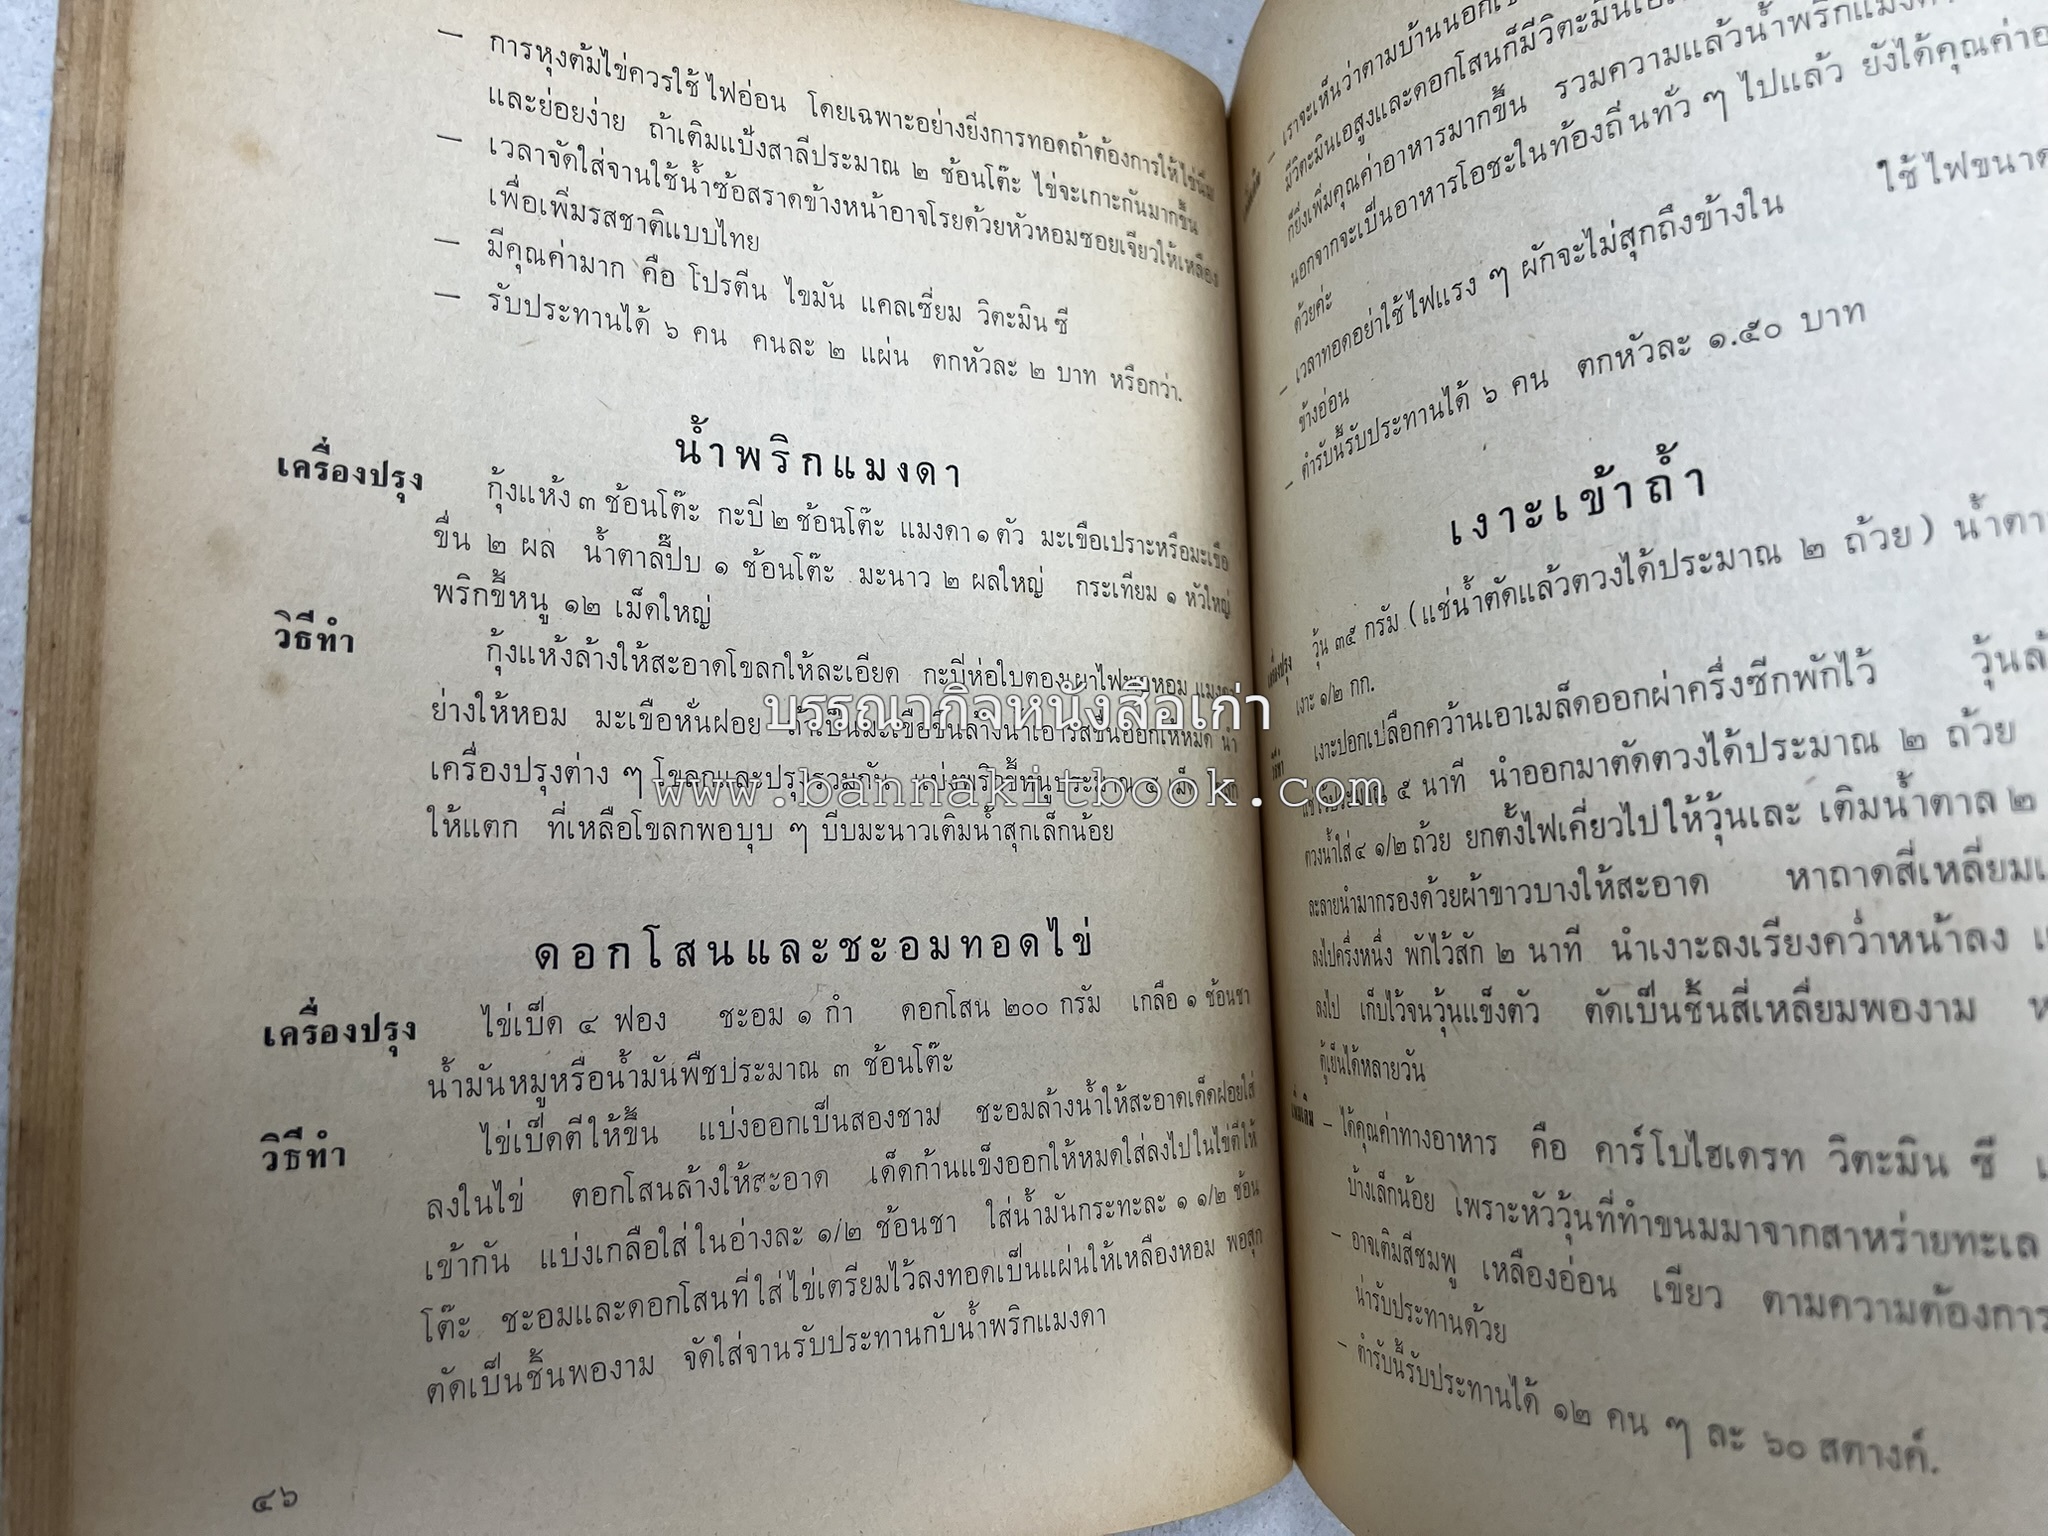 — การหุงต้มไข่ควรใช้ไฟอ่อน โดยเฉพาะอย่างยิ่งการทอดถ้าต้องการให้ไข่นิ่ม
และย่อยง่าย ถ้าเติมแป้งสาลีประมาณ ๒ ช้อนโต๊ะ ไข่จะเกาะกันมากขึ้น
— เวลาจัดใส่จานใช้น้ำซ้อสราดข้างหน้าอาจโรยด้วยหัวหอมซอยเจียวให้เหลือง
เพื่อเพิ่มรสชาติแบบไทย
— มีคุณค่ามาก คือ โปรตีน ไขมัน แคลเซี่ยม วิตะมิน ซี
— รับประทานได้ ๖ คน คนละ ๒ แผ่น ตกหัวละ ๒ บาท หรือกว่า.
น้ำพริกแมงดา
เครื่องปรุง กุ้งแห้ง ๓ ช้อนโต๊ะ กะปิ ๒ ช้อนโต๊ะ แมงดา ๑ ตัว มะเขือเปราะหรือมะเขือ
ขื่น ๒ ผล น้ำตาลปี๊บ ๑ ช้อนโต๊ะ มะนาว ๒ ผลใหญ่ กระเทียม ๑ หัวใหญ่
พริกขี้หนู ๑๒ เม็ดใหญ่
วิธีทำ กุ้งแห้งล้างให้สะอาดโขลกให้ละเอียด กะปิห่อใบตองเผาไฟ แมงดา
ย่างให้หอม มะเขือหั่นฝอย ถ้าเป็นมะเขือขื่นล้างน้ำเอารสขื่นออกให้หมด นำ
เครื่องปรุงต่าง ๆ โขลกและปรุงรวมกัน แบ่งพริกขี้หนูประมาณ ๕ เม็ด
ให้แตก ที่เหลือโขลกพอบุบ ๆ บีบมะนาวเติมน้ำสุกเล็กน้อย
บรรณากิจหนังสือเก่า
www.bannakitbook.com
ดอกโสนและชะอมทอดไข่
เครื่องปรุง ไข่เป็ด ๔ ฟอง ชะอม ๑ กำ ดอกโสน ๒๐๐ กรัม เกลือ ๑ ช้อนชา
น้ำมันหมูหรือน้ำมันพืชประมาณ ๓ ช้อนโต๊ะ
วิธีทำ ไข่เป็ดตีให้ขึ้น แบ่งออกเป็นสองชาม ชะอมล้างน้ำให้สะอาดเด็ดฝอยใส่
ลงในไข่ ดอกโสนล้างให้สะอาด เด็ดก้านแข็งออกให้หมดใส่ลงไปในไข่ตีให้
เข้ากัน แบ่งเกลือใส่ในอ่างละ ๑/๒ ช้อนชา ใส่น้ำมันกระทะละ ๑ ๑/๒ ช้อน
โต๊ะ ชะอมและดอกโสนที่ใส่ไข่เตรียมไว้ลงทอดเป็นแผ่นให้เหลืองหอม พอสุก
ตัดเป็นชิ้นพองาม จัดใส่จานรับประทานกับน้ำพริกแมงดา
๔๖
– เราจะเห็นว่าตามบ้านนอก
มีวิตะมินเอสูงและดอกโสนก็มีวิตะมิน
ก็ยิ่งเพิ่มคุณค่าอาหารมากขึ้น รวมความแล้วน้ำพริกแมงดา
นอกจากจะเป็นอาหารโอชะในท้องถิ่นทั่ว ๆ ไปแล้ว ยังได้คุณค่า
ด้วยค่ะ
– เวลาทอดอย่าใช้ไฟแรง ๆ ผักจะไม่สุกถึงข้างใน ใช้ไฟขนาด
ข้างอ่อน
– ตำรับนี้รับประทานได้ ๖ คน ตกหัวละ ๑.๕๐ บาท
เงาะเข้าถ้ำ
เครื่องปรุง วุ้น ๓๕ กรัม (แช่น้ำตัดแล้วตวงได้ประมาณ ๒ ถ้วย) น้ำตา
เงาะ ๑/๒ กก.
วิธีทำ เงาะปอกเปลือกคว้านเอาเมล็ดออกผ่าครึ่งซีกพักไว้ วุ้นล้
แช่ไว้ประมาณ ๕ นาที นำออกมาตัดตวงได้ประมาณ ๒ ถ้วย
ตวงน้ำใส่ ๔ ๑/๒ ถ้วย ยกตั้งไฟเคี่ยวไปให้วุ้นเละ เติมน้ำตาล ๒
ละลายนำมากรองด้วยผ้าขาวบางให้สะอาด หาถาดสี่เหลี่ยม
ลงไปครึ่งหนึ่ง พักไว้สัก ๒ นาที นำเงาะลงเรียงคว่ำหน้าลง
ลงไป เก็บไว้จนวุ้นแข็งตัว ตัดเป็นชิ้นสี่เหลี่ยมพองาม
ตู้เย็นได้หลายวัน
เพิ่มเติม – ได้คุณค่าทางอาหาร คือ คาร์โบไฮเดรท วิตะมิน ซี
บ้างเล็กน้อย เพราะหัววุ้นที่ทำขนมมาจากสาหร่ายทะเล
– อาจเติมสีชมพู เหลืองอ่อน เขียว ตามความต้องการ
น่ารับประทานด้วย
– ตำรับนี้รับประทานได้ ๑๒ คน ๆ ละ ๖๐ สตางค์.